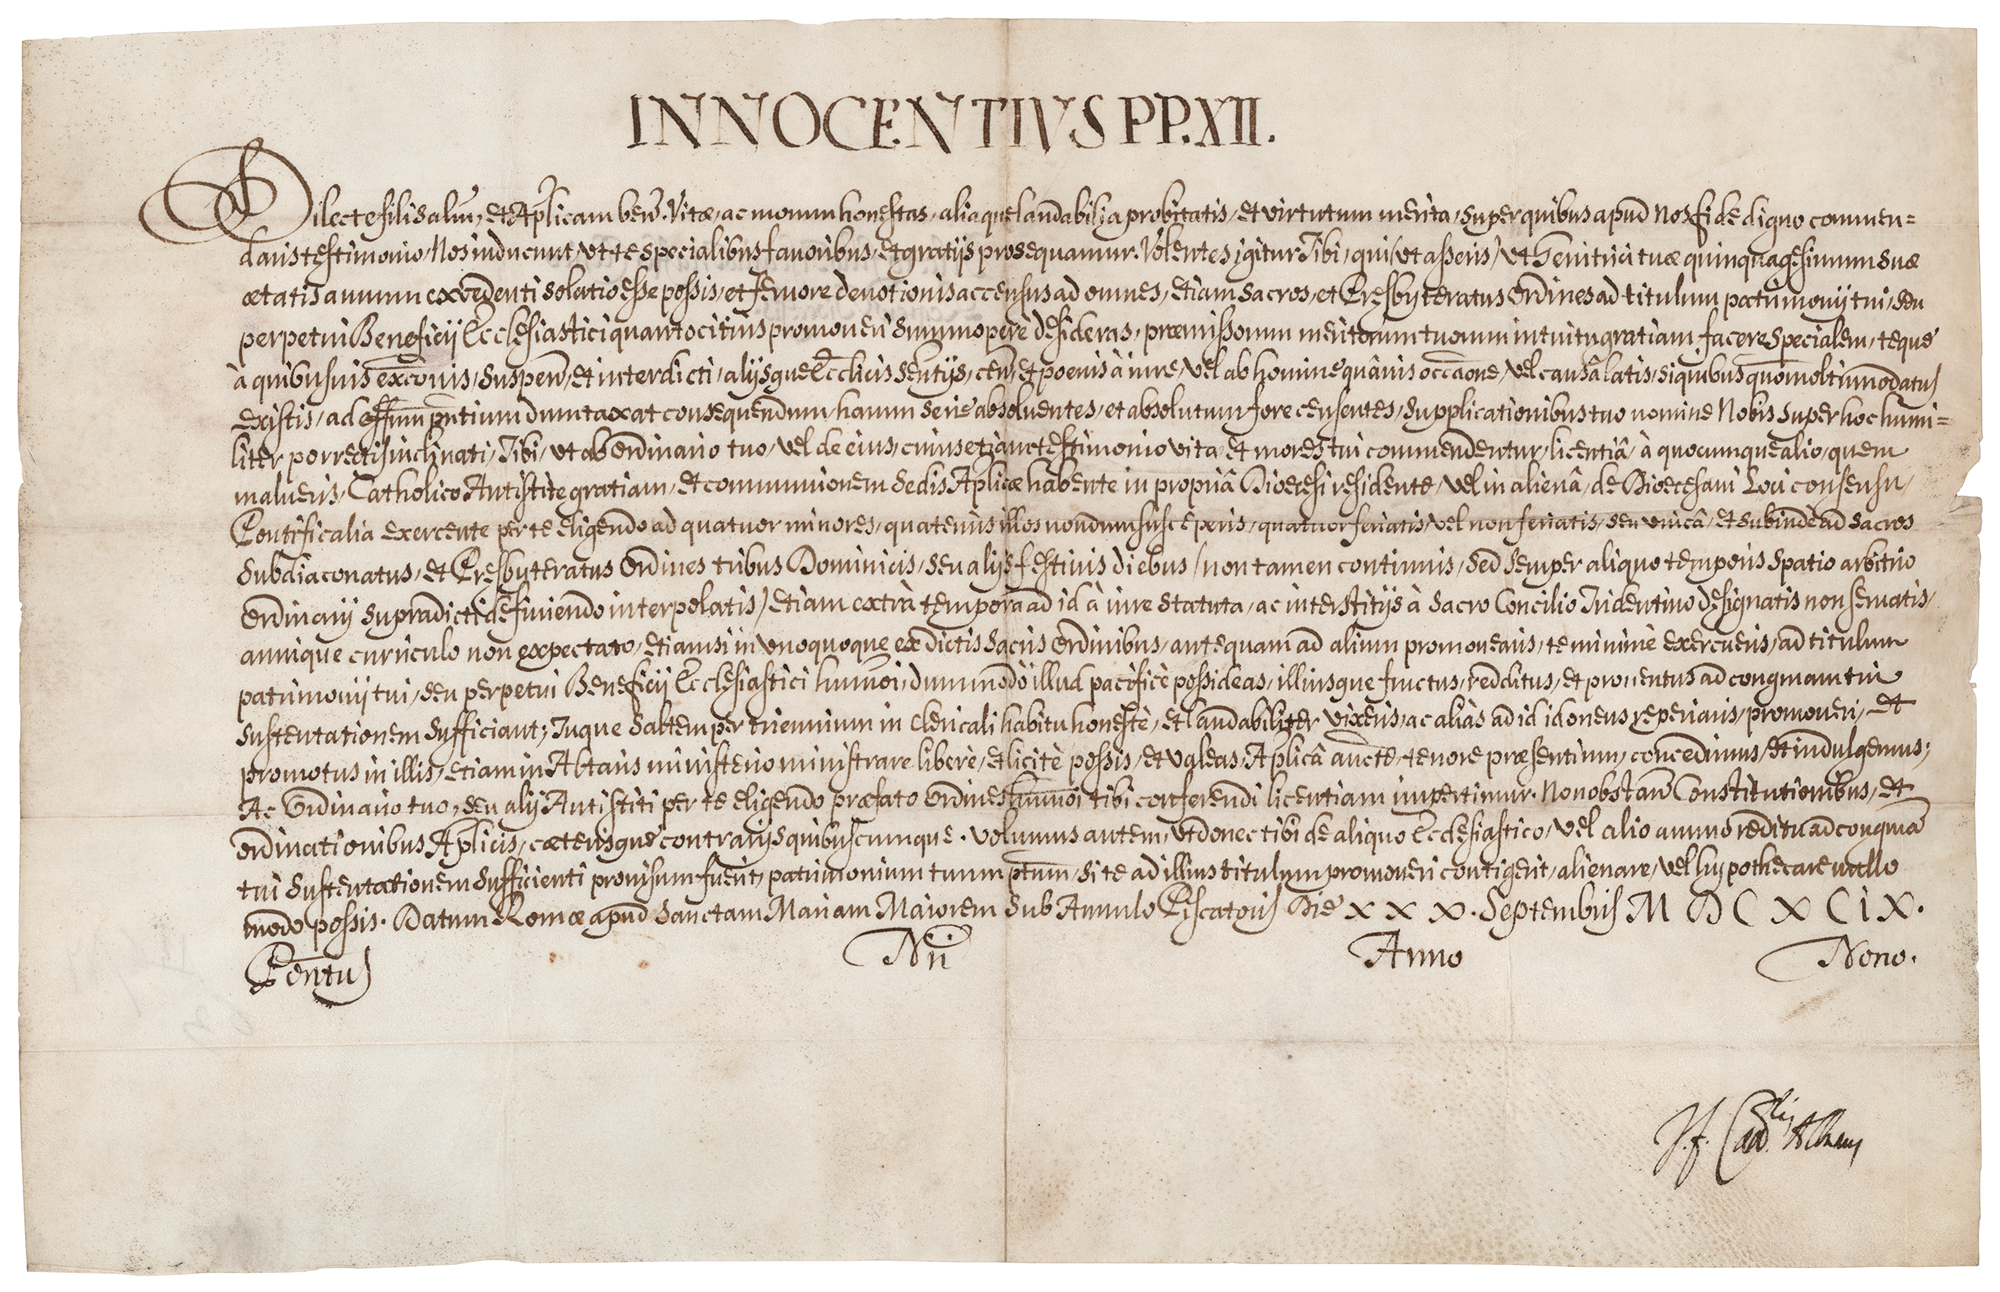 INNOCENTIVS PP. XII.
Dilecte fili salūm, et Ap̄licam beñ. Vitæ, ac morum honestas, aliaque laudabilia probitatis, et virtutum merita, super quibus apud Nos fide digno commen=
daris testimonio, Nos inducunt, ut te specialibus favoribus, et gratijs prosequamur. Volentes igitur Tibi, qui (ut asseris) ut Genitrici tuæ quinquagesimum suæ
ætatis annum excedenti solatio esse possis, et fervore devotionis accensus ad omnes, etiam sacros, et Presbyteratus Ordines ad titulum patrimonij tui, seu
perpetui Beneficij Ecclesiastici quantocitius promoveri summopere desideras, præmissorum meritorum tuorum intuitu gratiam facere specialem, teque
à quibusuis excōnis, suspeñ, et interdicti, alijsque Ecclīcis sentijs, ceñ, et poenis à iure, vel ab homine quâuis occāone, vel causâ latis, si quibus quomōlt innodatus
existis, ad effūm pn̄tium dumtaxat consequendum harum serie absolventes, et absolutum fore censentes, supplicationibus tuo nomine Nobis super hoc humi=
liter porrectis inclinati, Tibi, ut ab Ordinario tuo, vel de eius, cuius etiam testimonio vita, et mores tui commendentur, licentiâ, à quocumque alio, quem
malueris, Catholico Antistite gratiam, et communionem Sedis Ap̄licæ habente in propriâ Dioecesi residente, vel in alienâ, de Dioecesani Loci consensu,
Pontificalia exercente per te eligendo ad quatuor minores, quatenus illos nondum susceperis, quatuor feriatis, vel non feriatis, seu unicâ, et subinde ad sacros
Subdiaconatus, et Presbyteratus Ordines tribus Dominicis, seu alijs festiuis diebus (non tamen continuis, sed semper aliquo temporis spatio arbitrio
Ordinarij supradicti definiendo interpolatis) etiam extrà tempora ad id à iure statuta, ac interstitijs à Sacro Concilio Tridentino designatis non seruatis,
annique curriculo non expectato, etiam si in unoquoque ex dictis sacris Ordinibus, antequam ad alium promovearis, te minime exercueris, ad titulum
patrimonij tui, seu perpetui Beneficij Ecclesiastici hum̄oi, dummodo illud pacificè possideas, illiusque fructus, redditus, et prouentus ad congruam tui
sustentationem sufficiant; Tuque saltem per triennium in clericali habitu honestè, et laudabiliter vixeris, ac aliàs ad id idoneus reperiaris, promoveri, et
promotus in illis, etiam in Altaris ministerio ministrare liberè, et licitè possis, et valeas, Ap̄licâ aucte, tenore præsentium, concedimus, et indulgemus;
Ac Ordinario tuo, seu alij Antistiti per te eligendo præfato Ordines hum̄oi tibi conferendi licentiam impertimur. Non obstañ Constitutionibus, et
Ordinationibus Ap̄licis, cæterisque contrarijs quibuscumque. Volumus autem, ut donec tibi de aliquo Ecclesiastico, vel alio annuo redditu ad congruā
tui sustentationem sufficienti prouisum fuerit, patrimonium tuum ptum, si te ad illius titulum promoveri contigerit, alienare, vel hypothecare nullo
modo possis. Datum Romæ apud Sanctam Mariam Maiorem sub Annulo Piscatoris Die XXX. Septembris MDCXCIX.
Pontus Nri Anno Nono.
J. f. Cardlis Albanus